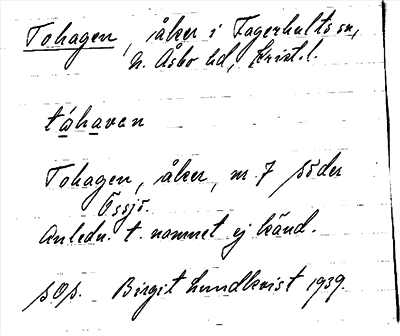 Tohagen, åker i Fagerhults sn,
n. Åsbo hd, Krist. l.
tåhaven
Tohagen, åker, nr 7 söder
Össjö.
Anledn. t. namnet ej känd.
Birgit Lundkvist 1939.